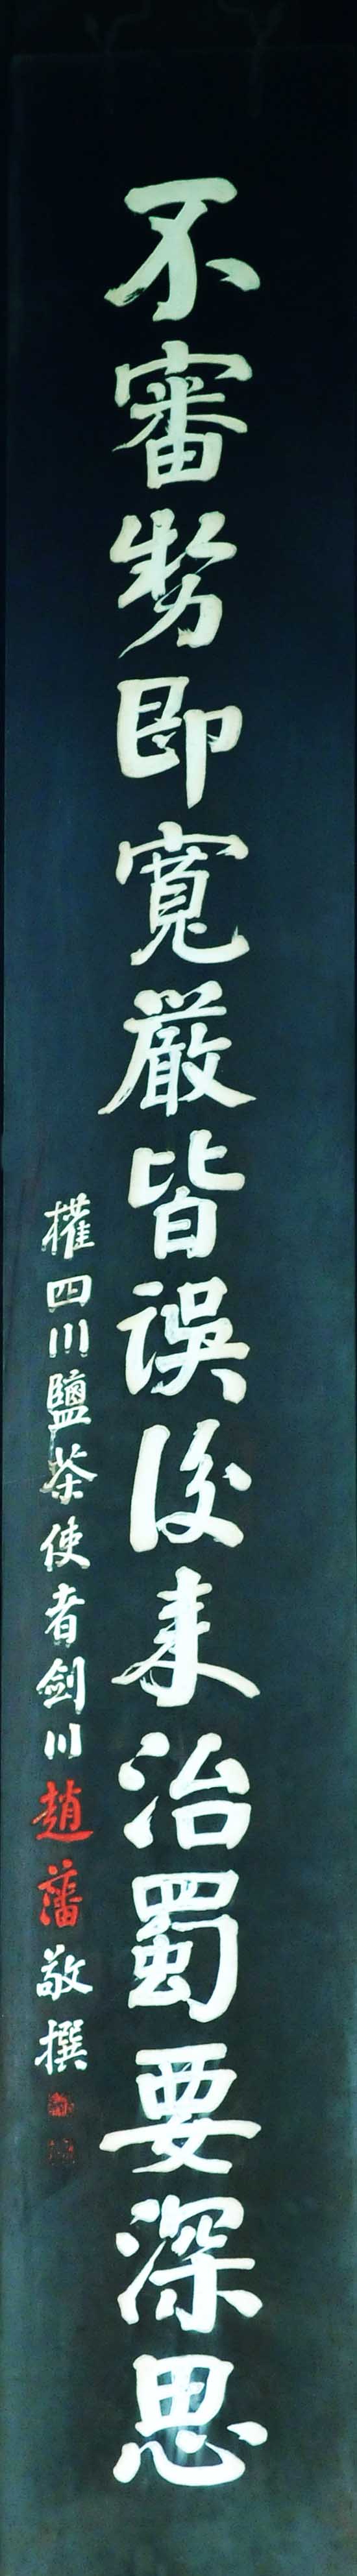 不審勢即寬嚴皆誤後来治蜀要深思
權四川鹽茶使者劍川趙藩敬撰